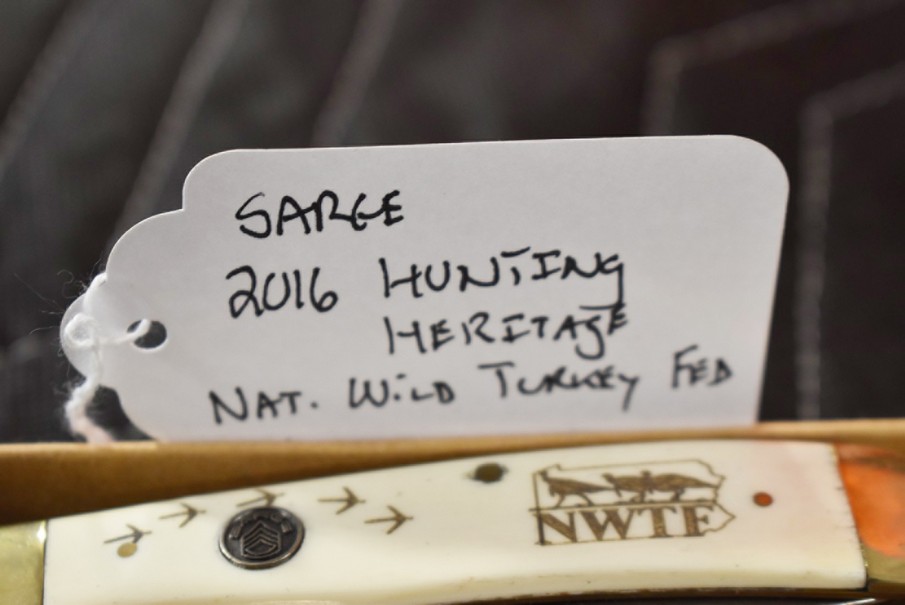 SARGE
2016 HUNTING
HERITAGE
NAT. WILD TURKEY FED
NWTF